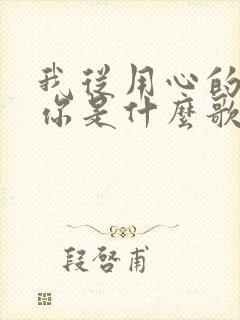 我從用心的
你是什麼歌
段啓甫